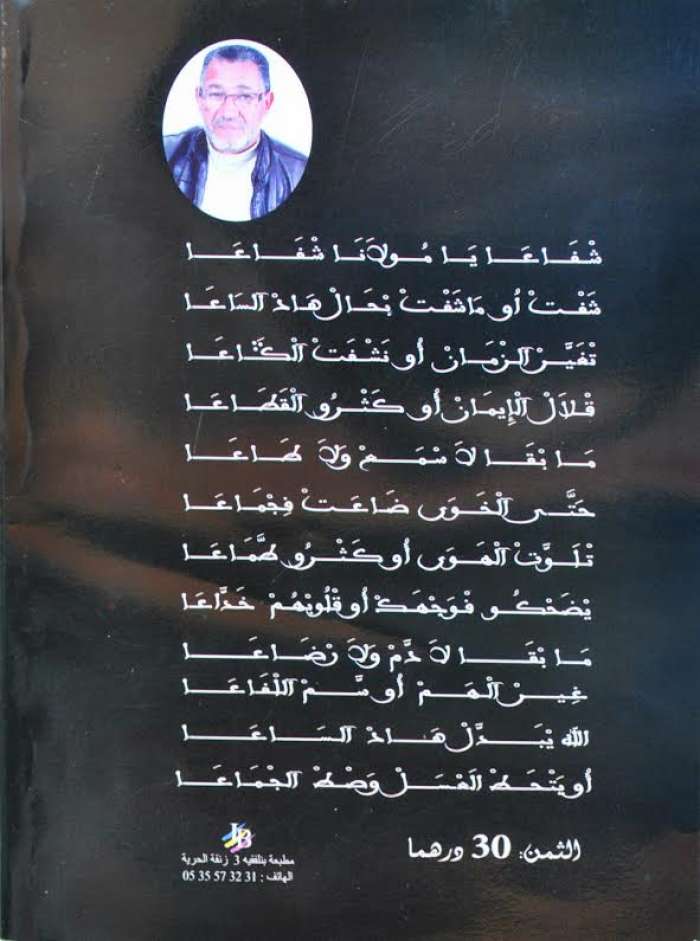 شْفَاعَا يَا مُولَانَا شْفَاعَا
شَفْتْ أو مَاشَفْتْ بْحَالْ هَادْ السَاعَا
تْغَيَّرْ الزْمَانْ أو نَشْفَتْ الْكَاعَا
قْلَالْ الْإِيمَانْ أو كَثْرُو الْقَطَاعَا
مَا بْقَا لَا سْمَعْ وَلَا طَاعَا
حَتَّى الْخَوَى ضَاعَتْ فِجْمَاعَا
تْلَوَّتْ الْهَوَى أو كَثْرُو طَمَّاعَا
يْضَحْكُو فَوَجْهَكْ أو قْلُوبْهُمْ خَدَّاعَا
مَا بْقَا لَا دَمْ وَلَا رْضَاعَا
غِيرْ الْهَمْ أو سَّمْ اللْفَاعَا
الله يْبَدَّلْ هَادْ السَاعَا
أو يَتْحَطْ الْعْسَلْ وَصْطْ الجْمَاعَا
الثمن: 30 درهما
مطبعة بنلفقيه 3 زنقة الحرية
الهاتف : 31 32 57 35 05